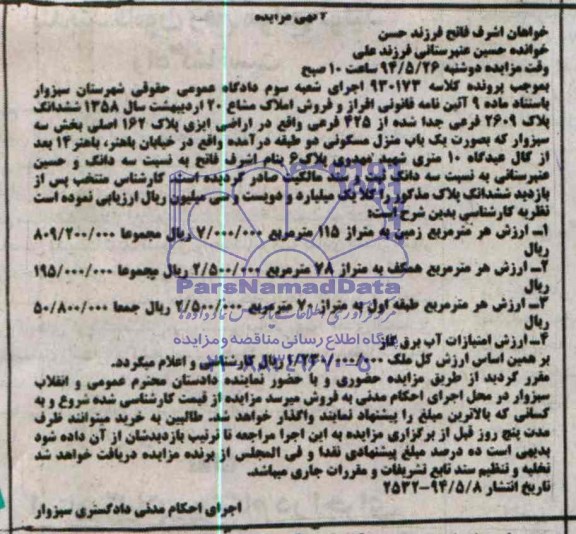 آگهی مزایده
خواهان اشرف فاتح فرزند حسن
خوانده حسین عنبرستانی فرزند علی
وقت مزایده دوشنبه ۹۴/۵/۲۶ ساعت ۱۰ صبح
بموجب پرونده کلاسه ۹۳۰۱۷۳ اجرای شعبه سوم دادگاه عمومی حقوقی شهرستان سبزوار
باستناد ماده ۹ آئین نامه قانونی افراز و فروش املاک مشاع ۲۰ اردیبهشت سال ۱۳۵۸ ششدانگ
پلاک ۲۶۰۹ فرعی جدا شده از ۴۲۵ فرعی واقع در اراضی ایزی پلاک ۱۶۲ اصلی بخش سه
سبزوار که بصورت یک باب منزل مسکونی دو طبقه درآمده واقع در خیابان باهنر، باهنر ۱۴ بعد
از کال عیدگاه ۱۰ متری شهید مهدوی پلاک ۶ بنام اشرف فاتح به نسبت سه دانگ و حسین
عنبرستانی به نسبت سه دانگ ثبت و سند مالکیت صادر گردیده است کارشناس منتخب پس از
بازدید ششدانگ پلاک مذکور را کلا یک میلیارد و دویست و سی میلیون ریال ارزیابی نموده است
نظریه کارشناسی بدین شرح است:
۱- ارزش هر مترمربع زمین به متراژ ۱۱۵ مترمربع ۷/۰۰۰/۰۰۰ ریال مجموعا ۸۰۹/۲۰۰/۰۰۰
ریال
۲- ارزش هر مترمربع همکف به متراژ ۷۸ مترمربع ۲/۵۰۰/۰۰۰ ریال مجموعا ۱۹۵/۰۰۰/۰۰۰
ریال
۳- ارزش هر مترمربع طبقه اول به متراژ ۷۰ مترمربع ۲/۵۰۰/۰۰۰ ریال جمعا ۵۰/۸۰۰/۰۰۰
ریال
۴- ارزش امتیازات آب برق گاز
بر همین اساس ارزش کل ملک ۱/۲۳۰/۰۰۰/۰۰۰ ریال کارشناسی و اعلام میگردد.
مقرر گردید از طریق مزایده حضوری و با حضور نماینده دادستان محترم عمومی و انقلاب
سبزوار در محل اجرای احکام مدنی به فروش میرسد مزایده از قیمت کارشناسی شده شروع و به
کسانی که بالاترین مبلغ را پیشنهاد نمایند واگذار خواهد شد. طالبین به خرید میتوانند ظرف
مدت پنج روز قبل از برگزاری مزایده به این اجرا مراجعه تا ترتیب بازدیدشان از آن داده شود
بدیهی است ده درصد مبلغ پیشنهادی نقدا و فی المجلس از برنده مزایده دریافت خواهد شد
تخلیه و تنظیم سند تابع تشریفات و مقررات جاری میباشد.
تاریخ انتشار ۹۴/۵/۸-۲۵۳۲
اجرای احکام مدنی دادگستری سبزوار
ParsNamadData
پایگاه اطلاع رسانی مناقصه و مزایده